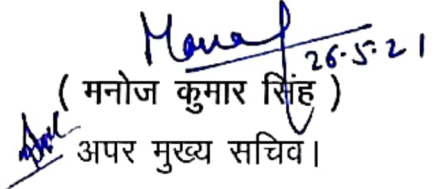 Manoj
26.5.21
( मनोज कुमार सिंह )
अपर मुख्य सचिव।